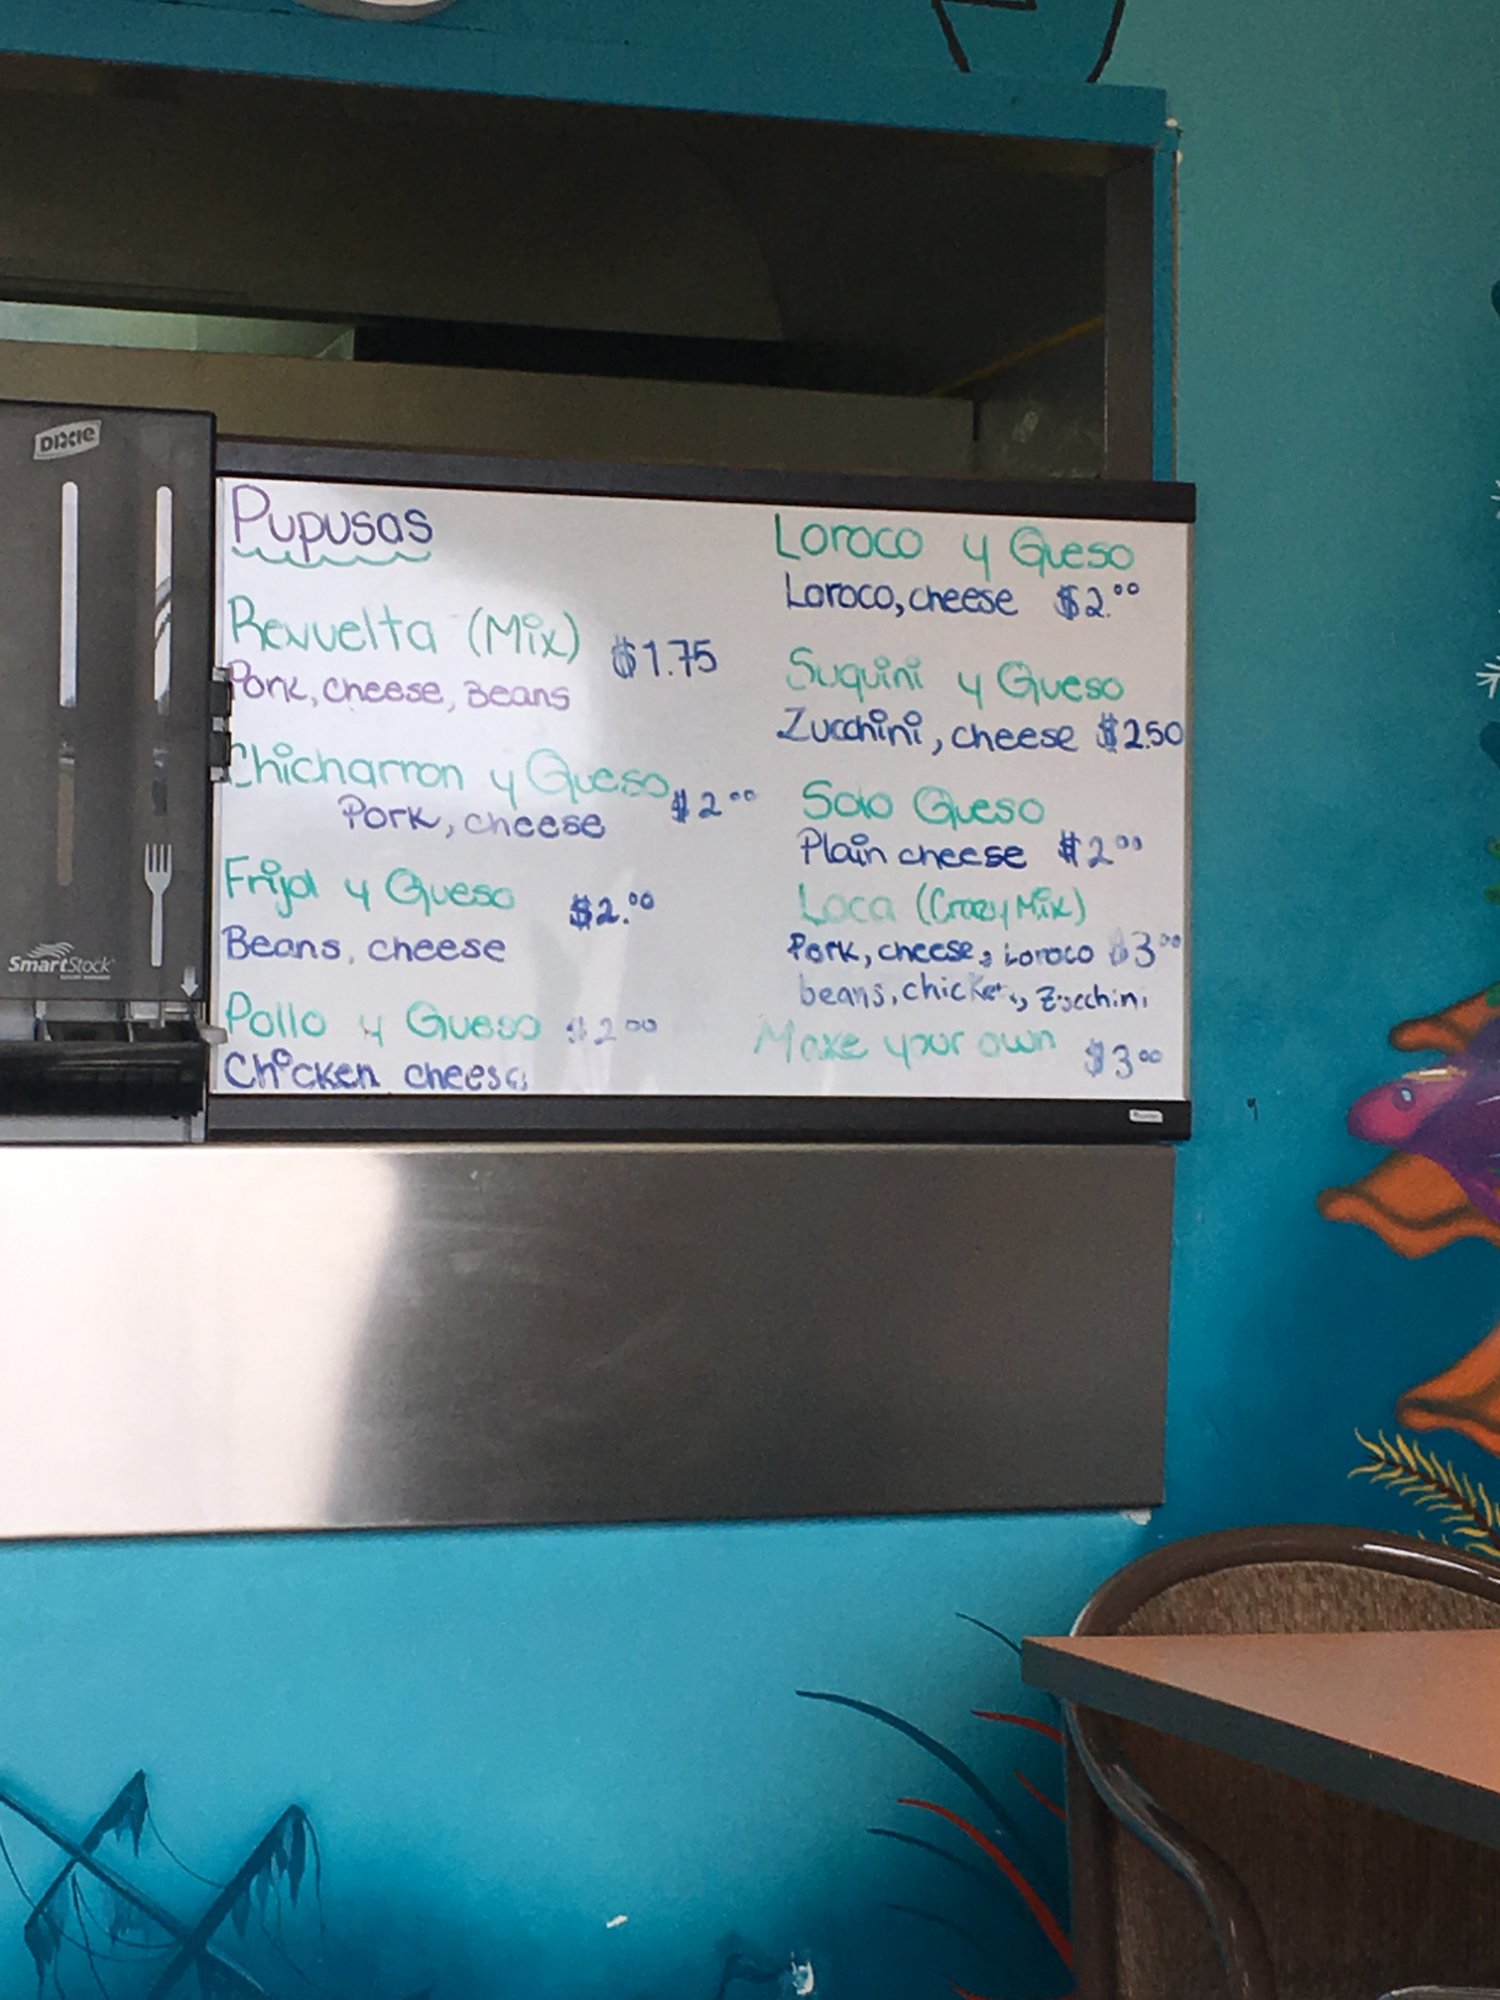 DIXIE
SmartStock
Pupusas
Revuelta (Mix) $1.75
Pork, cheese, Beans
Chicharron y Queso $2.00
Pork, cheese
Frijol y Queso $2.00
Beans, cheese
Pollo y Queso $2.00
Chicken cheese
Loroco y Queso
Loroco, cheese $2.00
Suquini y Queso
Zucchini, cheese $2.50
Solo Queso
Plain cheese $2.00
Loca (Crazy Mix)
Pork, cheese, Loroco $3.00
beans, chicken, Zucchini
Make your own $3.00